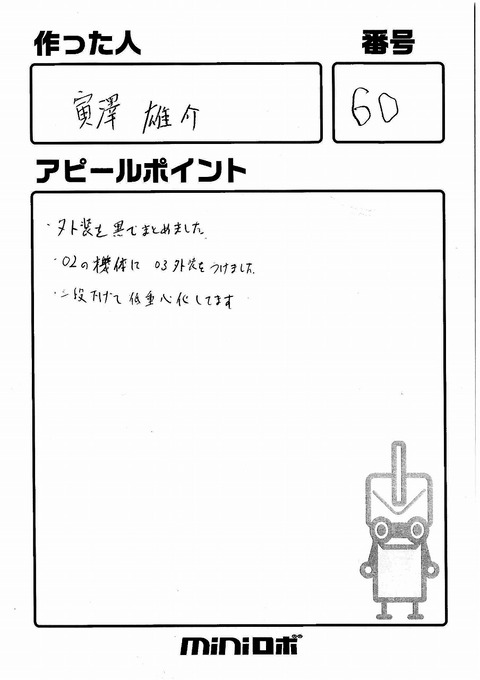 作った人
番号
寅澤 雄介
60
アピールポイント
・外装を黒でまとめました。
・02の機体に 03外装をつけました。
・二段下げて低重心化してます
miniロボ